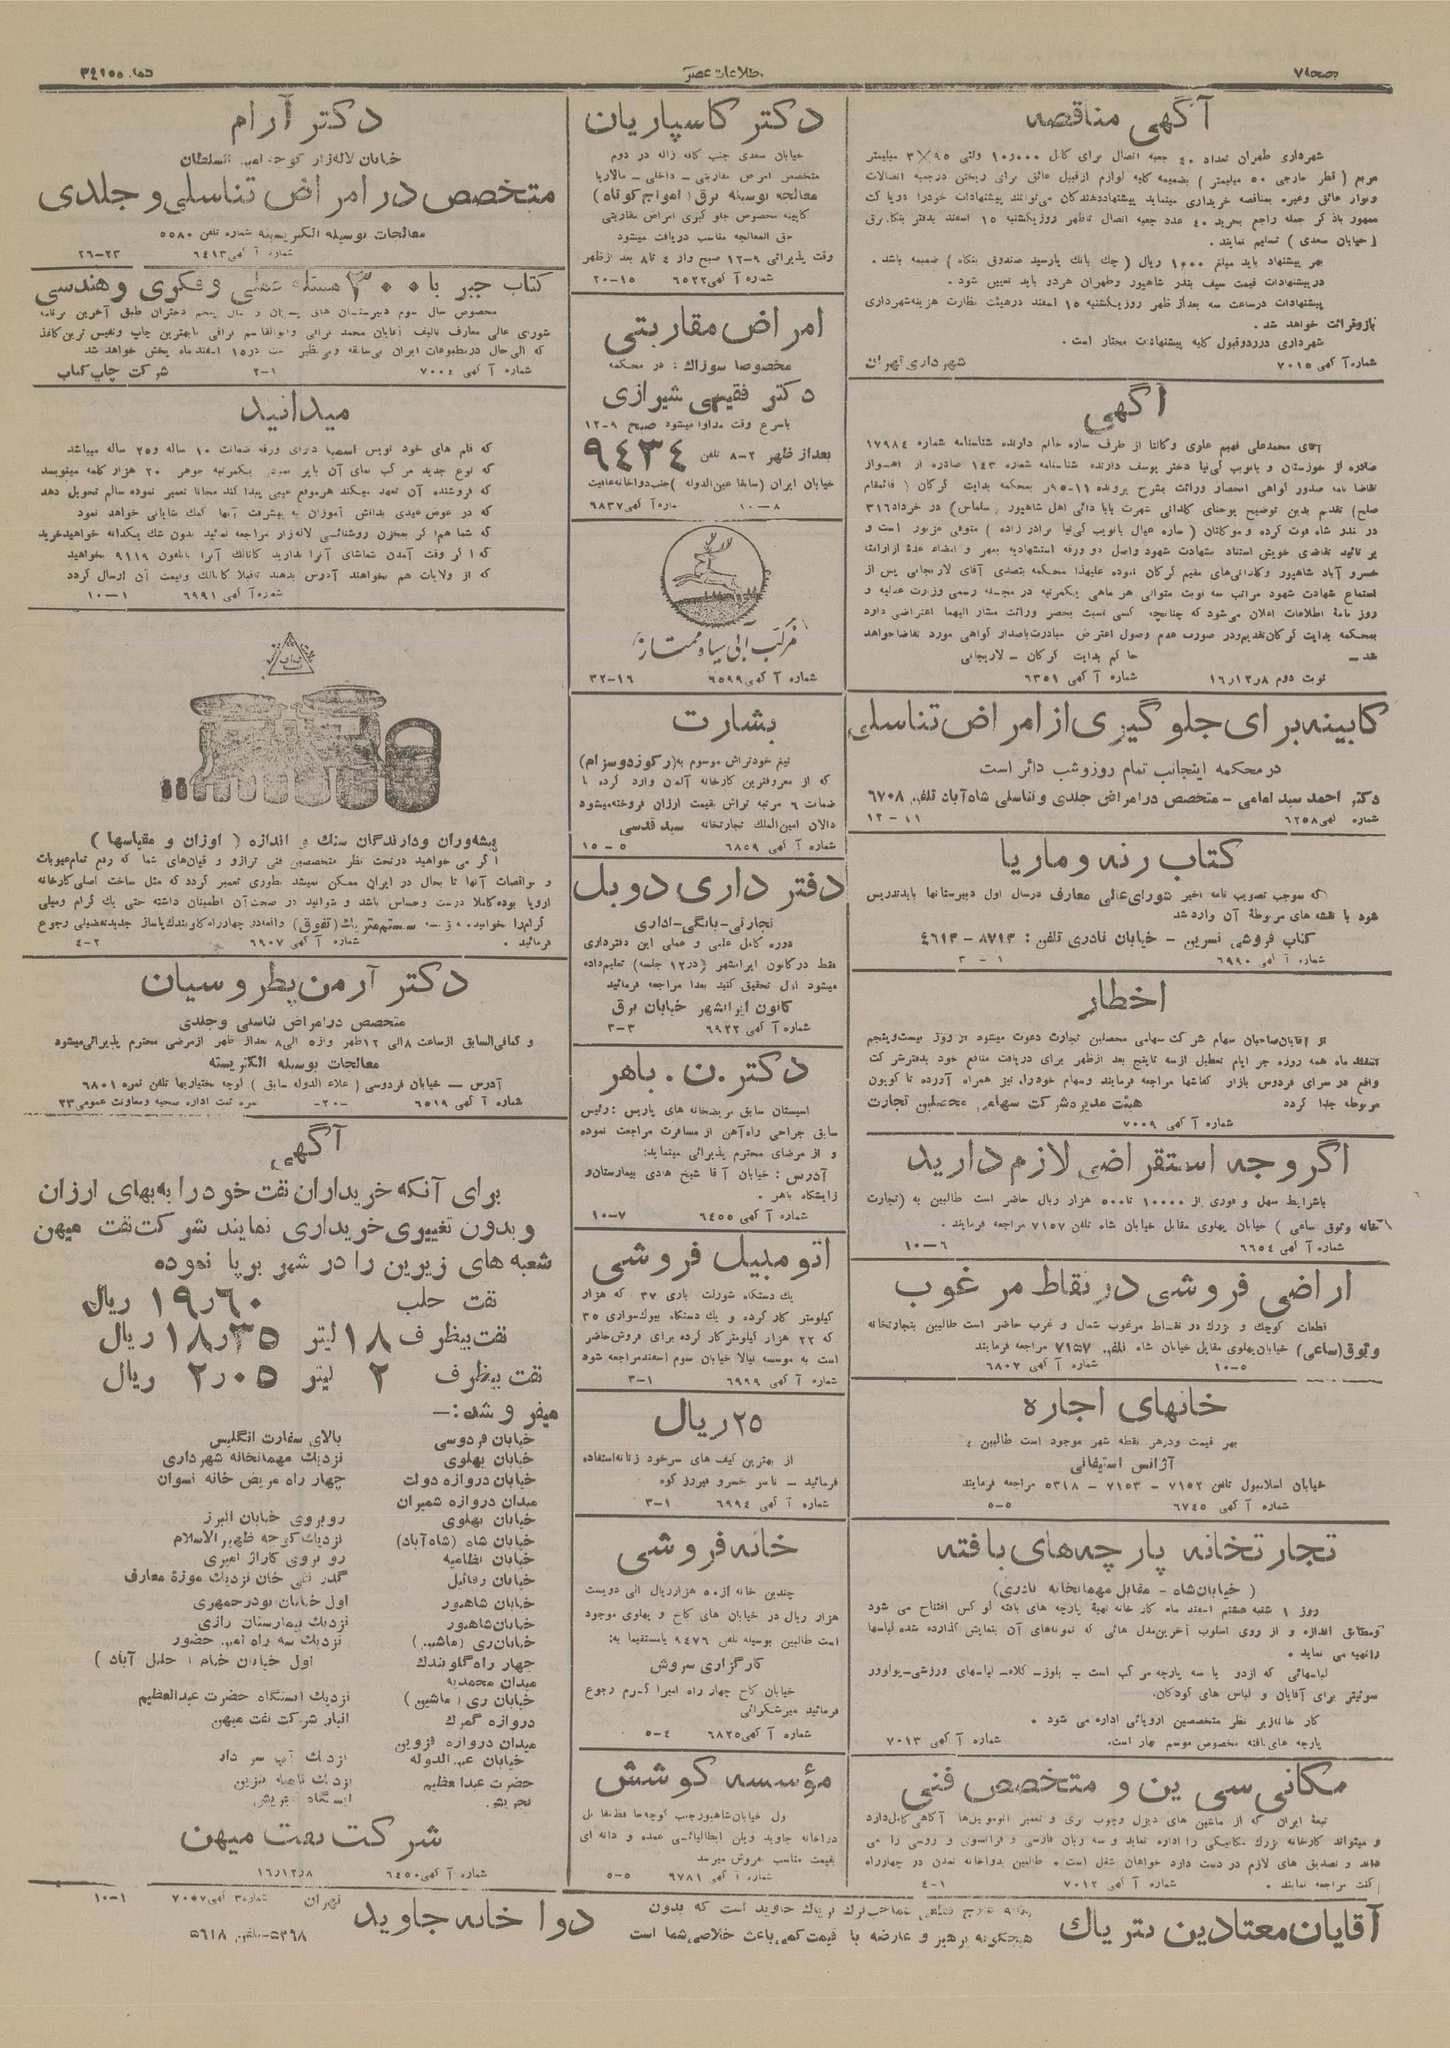 صفحه ۷
اطلاعات عصر
آگهی مناقصه
شهرداری طهران تعداد ۴۰ جعبه اتصال برای کابل ۱۰٫۰۰۰ ولتی ۹۵×۳ میلیمتر
مربع (قطر خارجی ۵۰ میلیمتر) بضمیمه کلیه لوازم ازقبیل عائق برای ریختن درجعبه اتصالات
ونوار عائق وغیره بمناقصه خریداری مینماید پیشنهاددهندگان می‌توانند پیشنهادات خودرا درپاکت
ممهور باذکر جمله راجع بخرید ۴۰ عدد جعبه اتصال تاظهر روزیکشنبه ۱۵ اسفند بدفتر بنگاه برق
(خیابان سعدی) تسلیم نمایند.
بهر پیشنهاد باید مبلغ ۱۰۰۰ ریال (چك بانك یارسید صندوق بنگاه) ضمیمه باشد.
درپیشنهادات قیمت سیف بندر شاهپور وطهران هردو باید تعیین شود.
پیشنهادات درساعت سه بعداز ظهر روزیکشنبه ۱۵ اسفند درهیئت نظارت هزینه‌شهرداری
بازوقرائت خواهد شد.
شهرداری درردوقبول کلیه پیشنهادات مختار است.
شماره آگهی ۷۰۱۵ شهرداری تهران
آگهی
آقای محمدعلی فهیم علوی وکالتا از طرف ساره خانم دارنده شناسنامه شماره ۱۷۹۸۴
صادره از خوزستان و بانویب لی‌نیا دختر یوسف دارنده شناسنامه شماره ۱۴۳ صادره از اهـواز
تقاضا نامه صدور گواهی انحصار وراثت بشرح پرونده ۱۱-۹۵ر بمحکمه بدایت گرگان (قائمقام
صلح) تقدیم بدین توضیح یوحنای کلدانی شهرت بابا دائی اهل شاهپور (سلماس) در خرداد ۳۱۶
در بندر شاه فوت کرده و موکلتان (ساره عیال بانویب لی‌نیا برادر زاده) متوفی مزبور است و
بر تائید تقاضای خویش استناد بشهادت شهود واصل دو ورقه استشهادیه بمهر و امضاء عدۀ ازارامنه
خسرو آباد شاهپور وکلدانی‌های مقیم گرگان نموده علیهذا محکمه بتصدی آقای لاریجانی پس از
استماع شهادت شهود مراتب سه نوبت متوالی هر ماهی یکمرتبه در مجله رسمی وزارت عدلیه و
روز نامۀ اطلاعات اعلان می‌شود که چنانچه کسی نسبت بحصر وراثت مشار الیهما اعتراضی دارد
بمحکمه بدایت گرگان‌تقدیم‌ودر صورت عدم وصول اعتراض مبادرت‌باصدار گواهی مورد تقاضاخواهد
شد ــ حاکم بدایت گرگان ــ لاریجانی
نوبت دوم ۱۶ر۱۲ر۸ شماره آگهی ۶۳۵۱
کابینه‌برای جلوگیری از امراض تناسلی
درمحکمه اینجانب تمام روزوشب دائر است
دکتر احمد سید امامی - متخصص درامراض جلدی وتناسلی شاه‌آباد تلفن ۶۷۰۸
شماره آگهی ۶۲۵۸ ۱۱ - ۱۲
کتاب رنه و ماریا
که بموجب تصویب نامه اخیر شورای‌عالی معارف درسال اول دبیرستانها بایدتدریس
شود با نقشه های مربوطۀ آن وارد شد
کتاب فروشی نسرین - خیابان نادری تلفن: ۸۷۱۳ - ۴۶۱۳
شماره آگهی ۶۹۹۰ ۱ - ۳
اخطار
از آقایان‌صاحبان سهام شرکت سهامی محصلین تجارت دعوت میشود از روز بیست‌وپنجم
اسفند ماه همه روزه جز ایام تعطیل ازسه تاپنج بعد ازظهر برای دریافت منافع خود بدفترشرکت
واقع در سرای فردوس بازار کفاشها مراجعه فرمایند وسهام خودرا نیز همراه آورده تاکوپون
مربوطه جدا گردد هیئت مدیره‌شرکت سهامی محصلین تجارت
شماره آگهی ۷۰۰۹
اگروجه استقراضی لازم دارید
باشرایط سهل و فوری از ۱۰۰۰۰ تا۵۰۰ هزار ریال حاضر است طالبین به (تجارت
خانه وثوق ساعی) خیابان پهلوی مقابل خیابان شاه تلفن ۷۱۵۷ مراجعه فرمایند.
شماره آگهی ۶۶۵۴ ۶-۱۰
اراضی فروشی در نقاط مرغوب
قطعات کوچك و بزرك در نقـاط مرغوب شمال و غرب حاضر است طالبین بتجارتخانه
وثوق(ساعی) خیابان‌پهلوی مقابل خیابان شاه تلفن ۷۱۵۷ مراجعه فرمایند
۵-۱۰ شماره آگهی ۶۸۰۷
خانهای اجاره
بهر قیمت ودرهر نقطه شهر موجود است طالبین به
آژانس استیفانی
خیابان اسلامبول تلفن ۷۱۵۲ - ۷۱۵۳ - ۵۳۱۸ مراجعه فرمایند
شماره آگهی ۶۷۴۵ ۵-۵
تجارتخانه پارچه‌های بافته
(خیابان‌شاه - مقابل مهمانخانه نادری)
روز ۱ شنبه هشتم اسفند ماه کار خانه تهیۀ پارچه های بافته لوکس افتتاح می شود
ومطابق اندازه و از روی اسلوب آخرین‌مدل هائی که نمونه‌های آن بنمایش گذارده شده لباسها
راتهیه می نماید.
لباسهائی که ازدو یا سه پارچه مرکب است بـ بلوز- کلاه- لباسهای ورزشی-پولوور
سوئیتر برای آقایان و لباس های کودکان.
کار خانه‌زیر نظر متخصصین اروپائی اداره می شود.
پارچه های‌بافته مخصوص موسم بهار است. شماره آگهی ۷۰۱۳
مکانی‌سی‌ین و متخصص فنی
تبعۀ ایران که از ماشین های دیزل وچوب بری و تعمیر اتومبیل‌ها آگاهی کامل‌دارد
و میتواند کارخانه بزرك مکانیکی را اداره نماید و سه زبان فارسی و فرانسوی و روسی را می
داند و تصدیق های لازم در دست دارد خواهان شغل است. طالبین بدواخانه تمدن در چهارراه
کنت مراجعه نمایند. شماره آگهی ۷۰۱۲ ۱-۴
دکتر کاسپاریان
خیابان سعدی جنب کافه ژاله در دوم
متخصص امراض مقاربتی - داخلی - مالاریا
معالجه بوسیله برق (امواج‌کوتاه)
کابینه مخصوص جلوگیری امراض مقاربتی
حق المعالجه مناسب دریافت میشود
وقت پذیرائی ۹-۱۲ صبح واز ۴ تا۸ بعد ازظهر
شماره آگهی ۶۵۲۲ ۱۵-۲۰
امراض مقاربتی
مخصوصا سوزاك: در محکمه
دکتر فقیهی شیرازی
باسرع وقت مداوا میشود صبح ۹-۱۲
بعداز ظهر ۲-۸ تلفن ۹۴۳۴
خیابان ایران (سابقا عین‌الدوله) جنب‌دواخانه‌عافیت
۸ - ۱۰ شماره آگهی ۶۸۳۷
مرکب آلی سیاه ممتاز
شماره آگهی ۶۵۹۹ ۱۶-۳۲
بشارت
تیغ خودتراش موسوم به(رکوزدوسزام)
که از معروفترین کارخانه آلمان وارد کرده با
ضمانت ۶ مرتبه تراش بقیمت ارزان فروخته‌میشود
دالان امین‌الملك تجارتخانه سید قدسی
شماره آگهی ۶۸۵۹ ۵ - ۱۵
دفتر داری دوبل
تجارتی-بانکی-اداری
دوره کامل علمی و عملی این دفترداری
فقط درکانون ایرانشهر (در۱۲ جلسه) تعلیم‌داده
میشود اول تحقیق کنید بعدا مراجعه فرمائید
کانون ایرانشهر خیابان برق
شماره آگهی ۶۹۲۲ ۳-۳
دکتر.ن. باهر
اسیستان سابق مریضخانه های پاریس: رئیس
سابق جراحی راه‌آهن از مسافرت مراجعت نموده
و از مرضای محترم پذیرائی مینماید:
آدرس: خیابان آقا شیخ هادی بیمارستان‌و
زایشگاه باهر.
شماره آگهی ۶۴۵۵ ۷-۱۰
اتومبیل فروشی
یك دستگاه شورلت باری ۳۷ که هزار
کیلومتر کار کرده و یك دستگاه بیوك‌سواری ۳۵
که ۲۲ هزار کیلومترکار کرده برای فروش‌حاضر
است به موسسه نیالا خیابان سوم اسفندمراجعه شود
شماره آگهی ۶۹۹۹ ۱-۳
۲۵ ریال
از بهترین کیف های سرخود زنانه‌استفاده
فرمائید - ناصر خسرو فیروز کوه
شماره آگهی ۶۹۹۴ ۱-۳
خانه فروشی
چندین خانه از۵۰ هزارریال الی دویست
هزار ریال در خیابان های کاخ و پهلوی موجود
است طالبین بوسیله تلفن ۹۴۷۶ یامستقیما به:
کارگزاری سروش
خیابان کاخ چهار راه امیراکرم رجوع
فرمائید میرشکرائی
شماره آگهی ۶۸۲۵ ۴-۵
مؤسسه کوشش
اول خیابان‌شاهپورجنب کوچه‌ها
دراخانه جاوید ویلن ایطالیائـی عمده و دانه ای
بقیمت مناسب بفروش میرسد
شماره آگهی ۶۷۸۱ ۵-۵
دکتر آرام
خیابان لاله‌زار کوچه امین السلطان
متخصص در امراض تناسلی و جلدی
معالجات بوسیله الکتریسیته شماره تلفن ۵۵۸۰
شماره آگهی ۶۴۱۳ ۲۳-۲۶
کتاب جبر با ۳۰۰ مسئله عملی و فکری و هندسی
مخصوص سال سوم دبیرستـان های پسران و سال پنجم دختران طبق آخرین برنامه
شورای عالی معارف تالیف آقایان محمد نراقی وابوالقاسم نراقی بابهترین چاپ ونفیس ترین‌کاغذ
که الی‌حال درمطبوعات ایران بی‌سابقه وبی‌نظیر است در۱۵ اسفندماه پخش خواهد شد
شماره آگهی ۷۰۰۴ ۱-۲ شرکت چاپ کتاب
میدانید
که قلم های خود نویس اسمیا دارای ورقه ضمانت ۱۰ ساله و۲۵ ساله میباشد
که نوع جدید مرکب نمای آن بایر یکمرتبه جوهر ۲۰ هزار کلمه مینویسد
که فروشنده آن تعهد میکند هرموقع عیبی پیدا کند مجانا تعمیر نموده سالم تحویل دهد
که در عوض عیدی بدانش آموزان به پیشرفت آنها کمك شایانی خواهد نمود
که شما هم‌اگر بمخزن روشنائی لاله‌زار مراجعه نمائید بدون شك یکدانه خواهیدخرید
که اگر وقت آمدن تماشای آنرا ندارید کاتالك آنرا باتلفون ۹۱۱۹ بخواهید
که از ولایات هم بخواهند آدرس بدهند تاقبلا کاتالك وقیمت آن ارسال گردد
شماره آگهی ۶۹۹۱ ۱-۱۰
پیشه‌وران ودارندگان سنك و اندازه (اوزان و مقیاسها)
اگر می خواهید درتحت نظر متخصصین فنی ترازو و قپان‌های شما که رفع تمام‌عیوبات
و نواقصات آنها تا بحال در ایران ممکن نمیشد بطوری تعمیر گردد که مثل ساخت اصلی‌کارخانه
اروپا بوده‌کاملا درست وحساس باشد و بتوانید در صحت آن اطمینان داشته حتی یك گرام ومیلی
گرام‌را بخوانید. سیستم‌متریك (تفوق) واقعه‌در چهارراه‌کلوبندك‌پاساژ جدیدتفضیلی رجوع
فرمائید. شماره آگهی ۶۹۰۷ ۲-۴
دکتر آرمن پطروسیان
متخصص درامراض تناسلی وجلدی
و کمافی‌السابق ازساعت ۸الی ۱۲ظهر واز۵ الی۸ بعداز ظهر ازمرضی محترم پذیرائی‌میشود
معالجات بوسیله الکتریسته
آدرس ــ خیابان فردوسی (علاء الدوله سابق) کوچه بختیاریها تلفن نمره ۶۸۰۱
شماره آگهی ۶۵۱۹ -۲۰- نمره ثبت اداره صحیه ومعاونت عمومی۲۳
آگهی
برای آنکه خریداران نفت خود را به‌بهای ارزان
و بدون تغییری خریداری نمایند شرکت نفت میهن
شعبه های زیرین را در شهر برپا نموده
نفت حلب ۱۹٫۶۰ ریال
نفت بیظرف ۱۸ لیتر ۱۸٫۳۵ ریال
نفت بیظرف ۲ لیتر ۲٫۰۵ ریال
میفروشد:ــ
خیابان فردوسی بالای سفارت انگلیس
خیابان پهلوی نزدیك مهمانخانه شهرداری
خیابان دروازه دولت چهار راه مریض خانه نسوان
میدان دروازه شمیران
خیابان پهلوی روبروی خیابان البرز
خیابان شاه (شاه‌آباد) نزدیك کوچه ظهیر الاسلام
خیابان نظامیه روبروی گاراژ امیری
خیابان رفائیل گذر تقی خان نزدیك موزۀ معارف
خیابان شاهپور اول خیابان بوذرجمهری
خیابان‌شاهپور نزدیك بیمارستان رازی
خیابان‌ری (ماشین) نزدیك سه راه امین حضور
چهار راه گلوبندك اول خیابان خیام (جلیل آباد)
میدان محمدیه
خیابان ری (ماشین) نزدیك ایستگاه حضرت عبدالعظیم
دروازه گمرك انبار شرکت نفت میهن
میدان دروازه قزوین
خیابان عین الدوله نزدیك
حضرت عبدالعظیم نزدیك
تجریش ایستگاه تجریش
شرکت نفت میهن
شماره آگهی ۶۴۵۰ ۱۶ر۱۲ر۸
آقایان معتادین بتریاك
ترك تریاك جاوید است که بدون
هیچگونه پرهیز و عارضه با قیمت‌کمی باعث خلاصی شما است
دواخانه جاوید
تهران شماره آگهی ۷۰۰۷ ۱-۱۰
۵۳۶۸-تلفن ۵۶۱۸